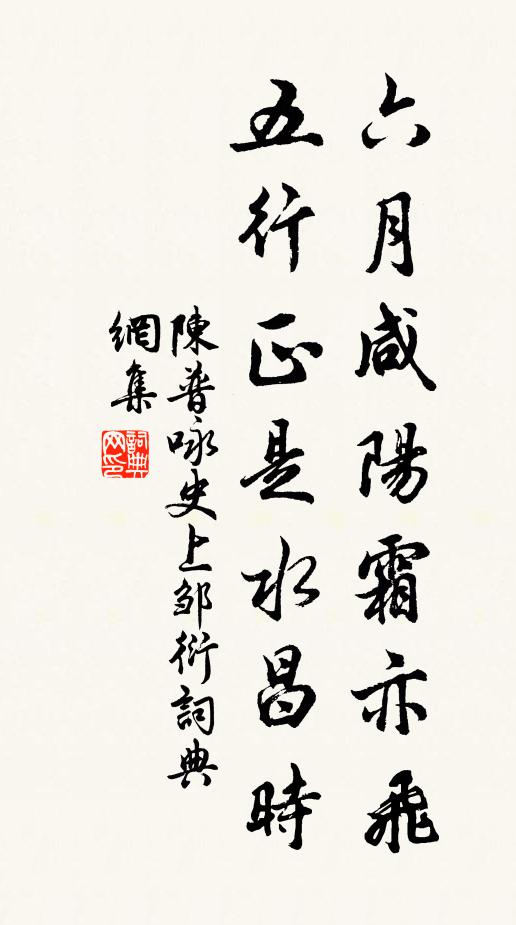 六月咸陽霜亦飛
五行正是水昌時
陳普咏史上邹衍詞典
網集
詞典
网印